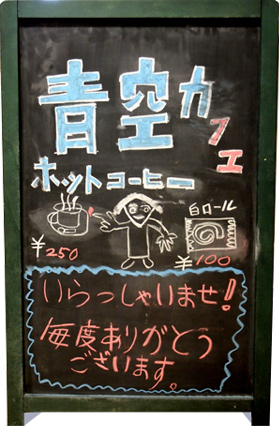 青空カフェ
ホットコーヒー
白ロール
¥250
¥100
いらっしゃいませ!
毎度ありがとう
ございます。